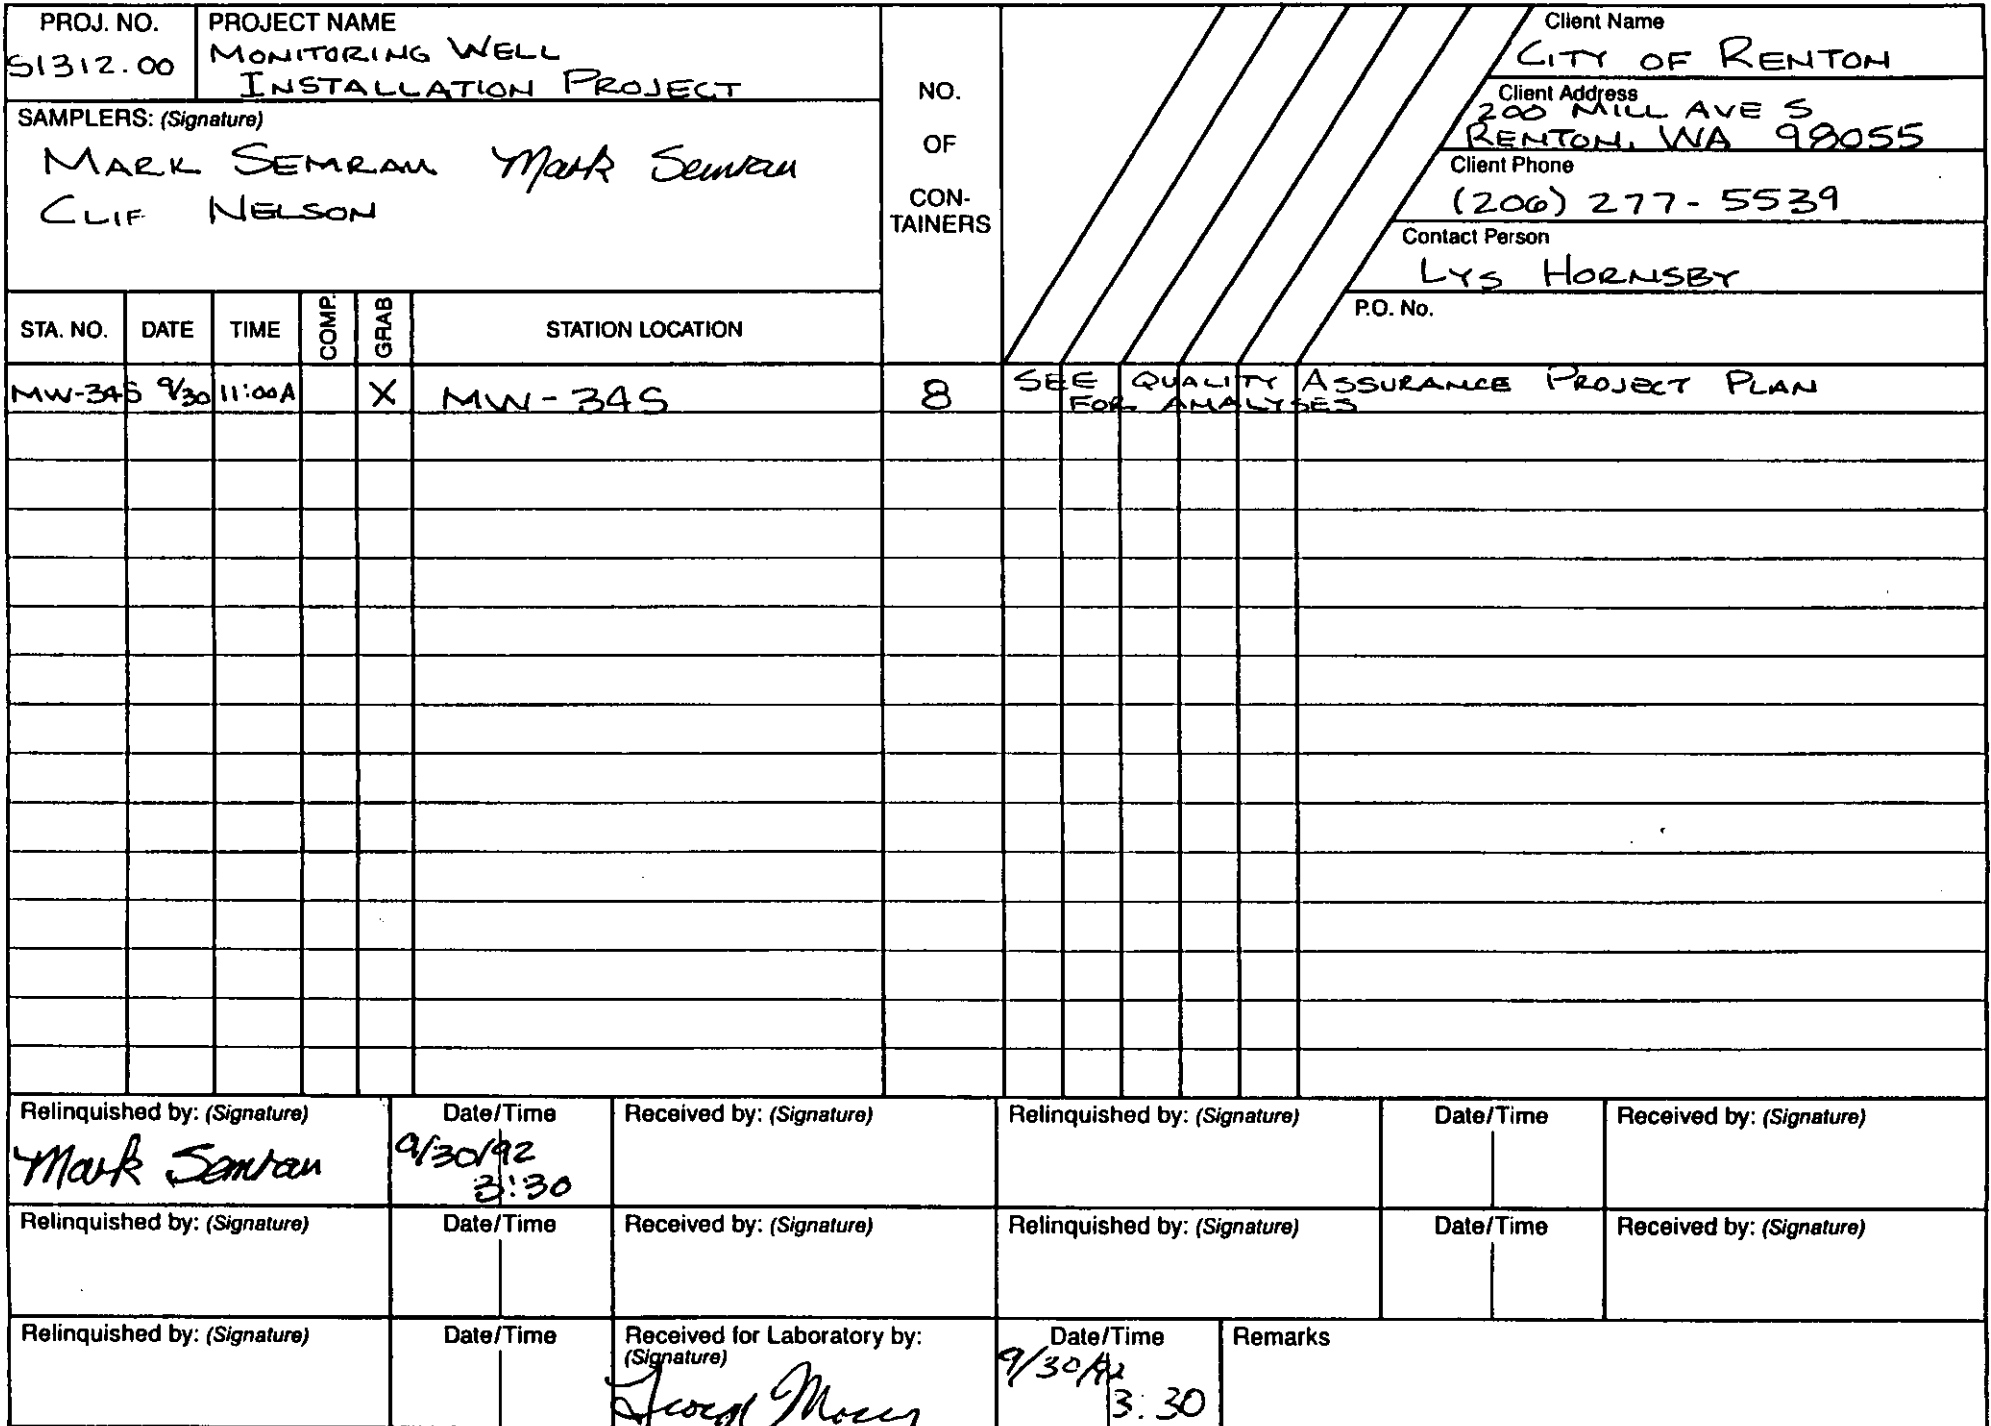 PROJ. NO.
S1312.00
PROJECT NAME
MONITORING WELL
INSTALLATION PROJECT
SAMPLERS: (Signature)
MARK SEMRAU Mark Semrau
CLIF NELSON
NO.
OF
CON-
TAINERS
Client Name
CITY OF RENTON
Client Address
200 MILL AVE S
RENTON, WA 98055
Client Phone
(206) 277-5539
Contact Person
LYS HORNSBY
P.O. No.
STA. NO. DATE TIME COMP. GRAB STATION LOCATION
MW-34S 9/30 11:00A X MW-34S 8 SEE QUALITY ASSURANCE PROJECT PLAN
FOR ANALYSES
Relinquished by: (Signature) Date/Time Received by: (Signature) Relinquished by: (Signature) Date/Time Received by: (Signature)
Mark Semrau 9/30/92
3:30
Relinquished by: (Signature) Date/Time Received by: (Signature) Relinquished by: (Signature) Date/Time Received by: (Signature)
Relinquished by: (Signature) Date/Time Received for Laboratory by: Date/Time Remarks
(Signature)
9/30/92
3:30